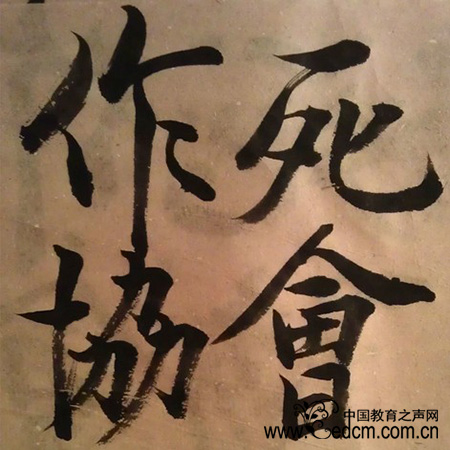 作死
協會
中国教育之声网
www.edcm.com.cn